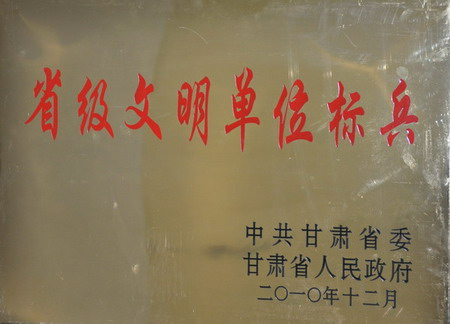 省级文明单位标兵
中共甘肃省委
甘肃省人民政府
二〇一〇年十二月